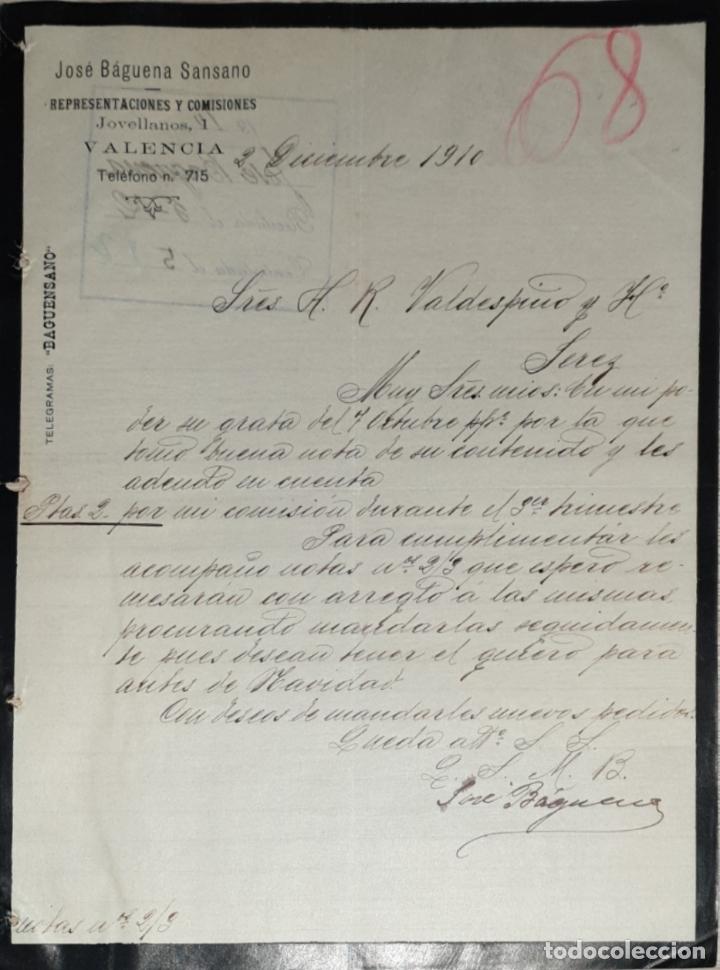 José Báguena Sansano
REPRESENTACIONES Y COMISIONES
Jovellanos, 1
VALENCIA
Teléfono n.º 715
TELEGRAMAS: "BAGUENSANO"
68
2 Diciembre 1910
Sres H. R. Valdespino y Hº
Jerez
Muy Sres. mios: En mi po-
der su grata del 7 Octubre ppº. por la que
tomo buena nota de su contenido y les
adeudo en cuenta
Ptas. 2. por mi comisión durante el 3er. trimestre
Para cumplimentár les
acompaño notas nos 2/3 que espero re-
mesarán con arreglo á las mismas
procurando mandarlas seguidamen-
te pues desean tener el género para
antes de Navidad.
Con deseos de mandarles nuevos pedidos
Queda atto. S. S.
Q. S. M. B.
José Báguena
notas nos 2/3
todocoleccion